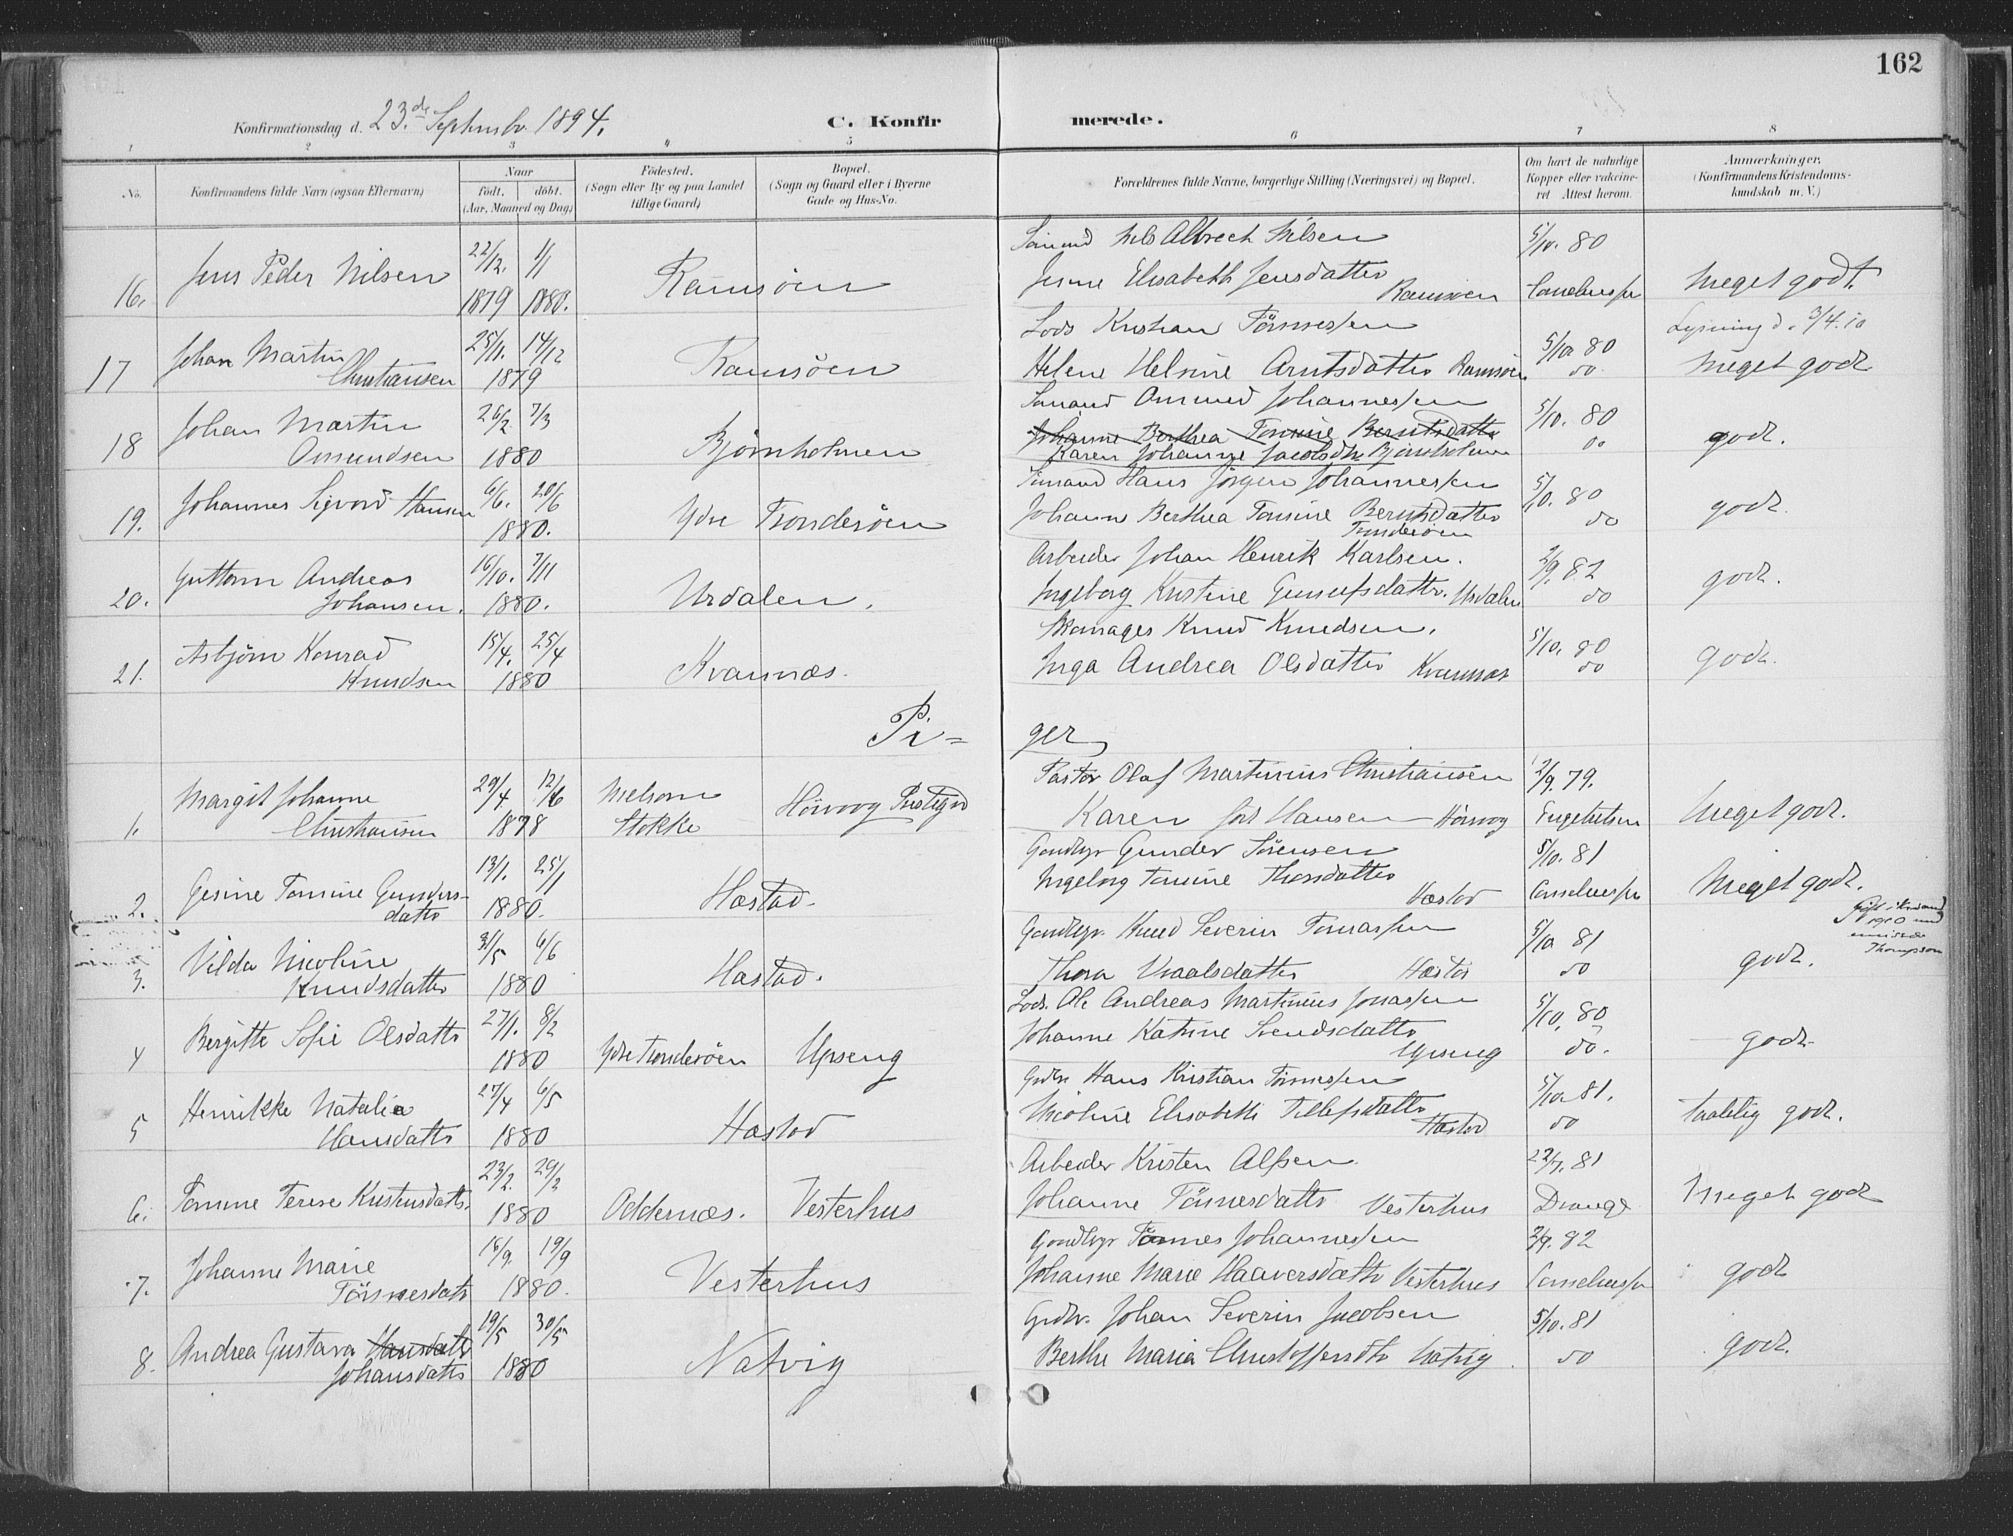 162
Konfirmationsdag d. 23.de Septembr 1894.
C. Konfirmerede.
1 2 3 4 5 6 7 8
No. Konfirmandens fulde Navn (ogsaa Efternavn)
Naar født. døbt. (Aar, Maaned og Dag)
Fødested. (Sogn eller By og paa Landet tillige Gaard)
Bopæl. (Sogn og Gaard eller i Byerne Gade og Hus-No.
Forældrenes fulde Navne, borgerlige Stilling (Næringsvei) og Bopæl.
Om havt de naturlige Kopper eller vaccineret Attest herom.
Anmærkninger. (Konfirmandens Kristendomskundskab m. V.)
16. Jens Peder Nilsen 22/12. 1879 1/1 1880. Ramsöen
Nils Albrech Nilsen
Elisabeth Jensdatter Ramsöen
5/10. 80 Meget godt.
17 Johan Martin Christiansen 25/11. 14/12 1879 Ramsöen
Lods Kristian Tönnessen
Helene Helvine Arntsdatter Ramsöen
5/10 80 do
Lysning d. 3/4.10
Meget godt
18 Johan Martin Omundsen 26/2 7/3 1880 Bjørnholmen
Ommund Johannessen
Johanne Berthea Tomine Berntsdatter
Karen Johanne Jacobsdtr Bjørnholmen
5/10. 80 do godt.
19. Johannes Sigvord Hansen 6/6. 20/6 1880. Ydre Tronderöen
Hans Jörgen Johannessen
Johanne Berthea Tomine Berntsdatter
Tronderöen
5/10. 80 do godt.
20. Guttorm Andreas Johansen. 16/10. 7/11 1880. Urdalen.
Arbeider Johan Henrik Karlsen.
Ingeborg Kristine Gunulfsdatter. Urdalen
2/9. 82 do godt.
21. Asbjørn Konrad Knudsen 15/4. 25/4 1880 Kvannæs.
Skomager Knud Knudsen.
Inga Andrea Olsdatter Kvannæs
5/10. 80 do godt.
Pi= ger
1. Margit Johanne Christiansen 29/4 12/6 1878 Melsom Stokke
Pastor Olaf Martinius Christiansen
Karen föd Hansen - Hövvog
2/9 79. Engebretsen Meget godt.
2. Gesine Tomine Gundersdatter 13/1. 25/1 1880. Hæstad.
Gaardbgr Gunder Sörensen
Ingeborg Tomine Thorsdatter Hæstad
5/10. 81 Meget godt.
3. Vilda Nicoline Knudsdatter 31/5 6/6 1880 Hæstad.
Gaardbgr. Knud Severin Tomassen
Thora Vraalsdatter Hæstad
5/10 81 do godt.
1910 Thompson
4 Bergitte Sofie Olsdatter 27/1. 8/2 1880 Ydre Tronderöen Upseng
Lods. Ole Andreas Martinius Jonassen
Johanne Katrine Svendsdatter
Upseng
5/10. 80 do. godt
5 Henrikke Natalia Hansdatter 27/4 6/5 1880 Hæstad
Hans Kristian Tönnessen
Nicoline Elisabeth Tellefsdatter
Hæstad
5/10 81. do taalelig godt.
6. Tomine Terese Kristensdatter. 23/2. 29/2 1880 Oddernæs. Vesterhus
Arbeider Kristen Alfsen
Johanne Tönnesdatter Vesterhus
22/7. 81 Drange Meget godt
7. Johanne Marie Tönnesdatter 16/9. 19/9 1880. Vesterhus
Gaardbgr Tönnes Johannessen
Johanne Marie Haaversdatter Vesterhus
2/9. 82 godt
8. Andrea Gustava Hansdatter Johansdatter 19/5 30/5 1880 Natvig
Johan Severin Jacobsen
Berthe Maria Christoffersdtr Natvig
5/10. 81 do godt.